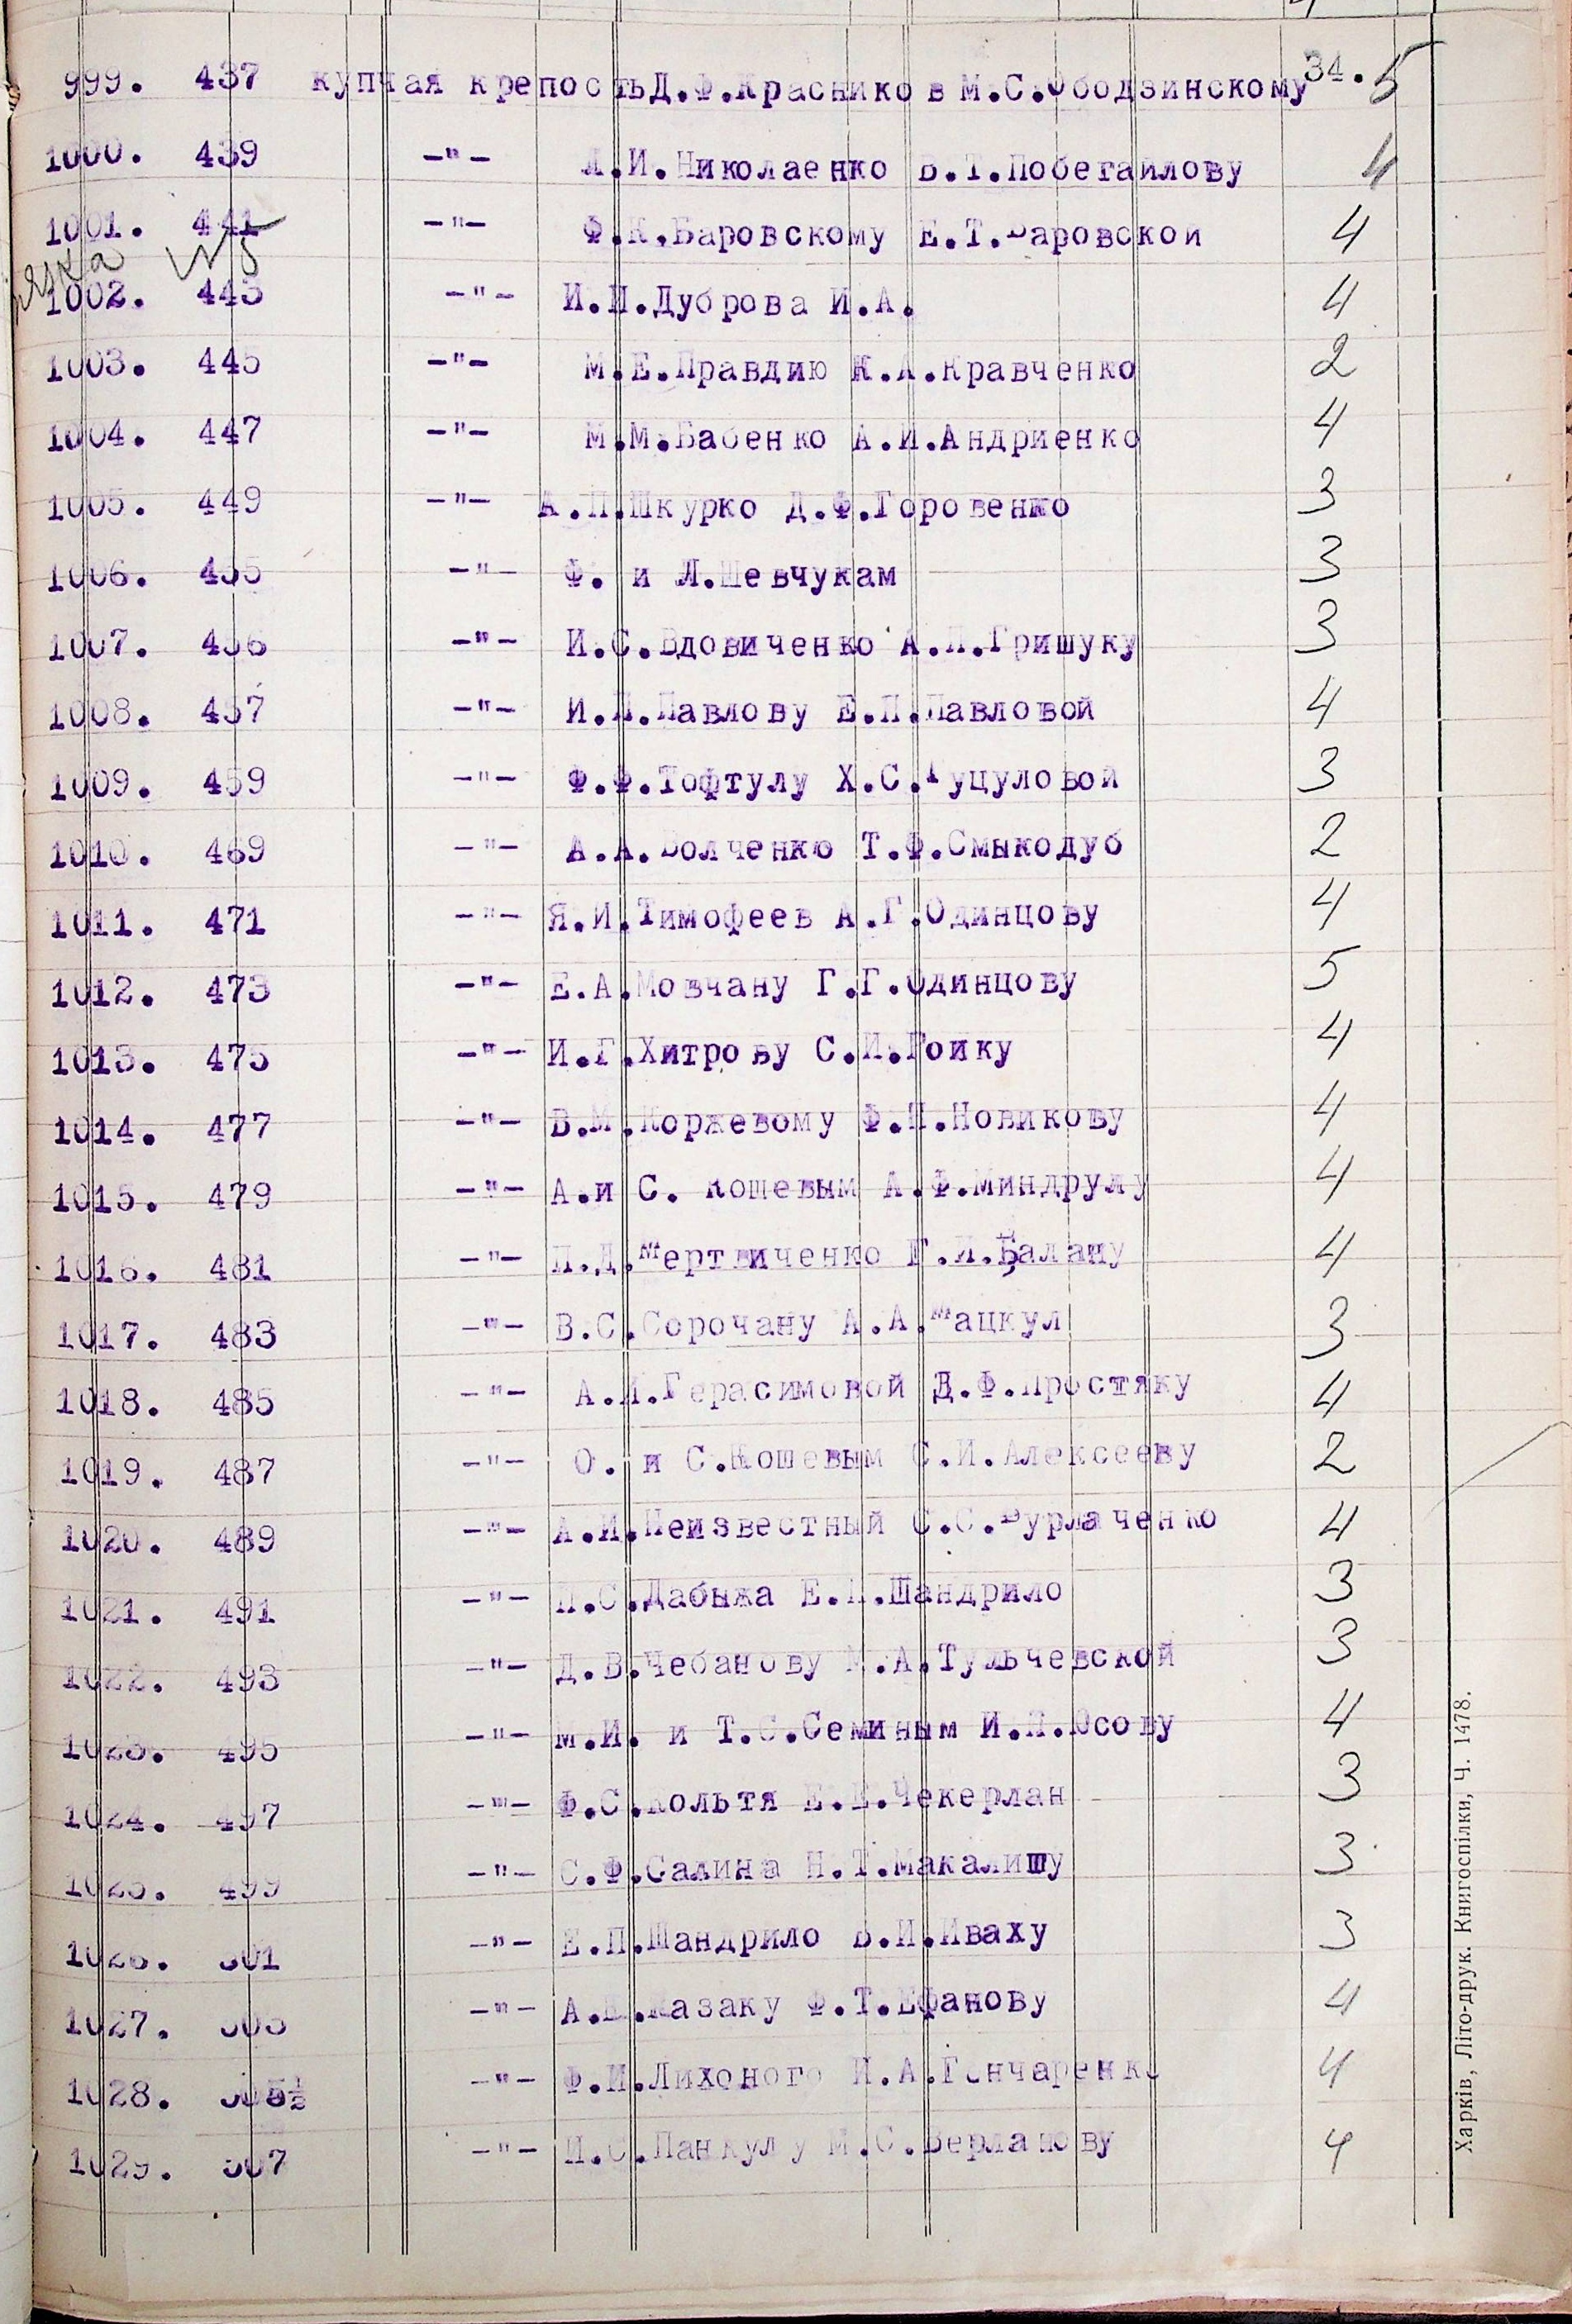 999. 437 купчая крепость Д.Ф.Красников М.С.Ободзинскому 34. 5
1000. 439 -"- И.Николаенко В.Т.Побегайлову 4
1001. 441 -"- Ф.К.Баровскому Е.Т.Баровской 4
1002. 443 -"- И.Н.Дуброва И.А. 4
1003. 445 -"- М.Е.Правдию К.А.Кравченко 2
1004. 447 -"- М.М.Бабенко А.И.Андриенко 4
1005. 449 -"- А.П.Шкурко Д.Ф.Горовенко 3
1006. 455 -"- Ф. и Л.Шевчукам 3
1007. 456 -"- И.С.Вдовиченко А.П.Гришуку 3
1008. 457 -"- И.П.Павлову Е.П.Павловой 4
1009. 459 -"- Ф.Ф.Тофтулу Х.С.Гуцуловой 3
1010. 469 -"- А.А.Волченко Т.Ф.Смыкодуб 2
1011. 471 -"- Я.И.Тимофеев А.Г.Одинцову 4
1012. 473 -"- Е.А.Мовчану Г.Г.Одинцову 5
1013. 475 -"- И.Г.Хитрову С.И.Гоику 4
1014. 477 -"- В.М.Коржевому Ф.П.Новикову 4
1015. 479 -"- А.и С. Кошевым А.Ф.Миндрулу 4
1016. 481 -"- П.Д.Мертвиченко Г.И.Балану 4
1017. 483 -"- В.С.Сорочану А.А.Мацкул 3
1018. 485 -"- А.И.Герасимовой Д.Ф.Простяку 4
1019. 487 -"- О. и С.Кошевым С.И.Алексееву 2
1020. 489 -"- А.И.Неизвестный С.С.Бурлаченко 4
1021. 491 -"- П.С.Дабыжа Е.П.Шандрило 3
1022. 493 -"- Д.В.Чебанову М.А.Тульчевской 3
1023. 495 -"- М.И. и Т.С.Семиным И.П.Юсову 4
1024. 497 -"- Ф.С.Кольтя Е.Е.Чекерлан 3
1025. 499 -"- С.Ф.Салина Н.Т.Макалишу 3
1026. 501 -"- Е.П.Шандрило В.И.Иваху 3
1027. 503 -"- А.Казаку Ф.Т.Ефанову 4
1028. 505½ -"- Ф.И.Лихоного И.А.Гончаренко 4
1029. 507 -"- И.С.Панкулу М.С.Верланову 4
Харків, Літо-друк. Книгоспілки, Ч. 1478.